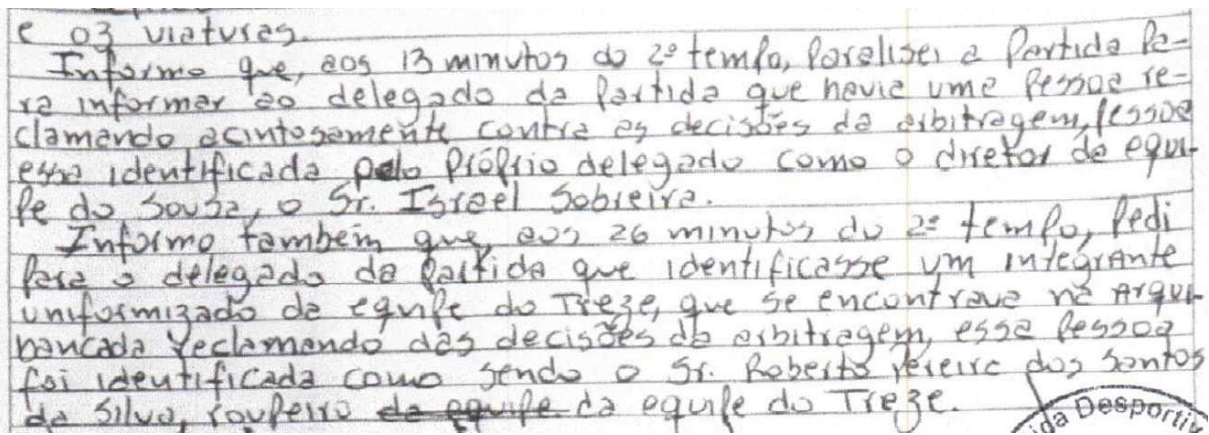 e 03 viaturas.
Informo que, aos 13 minutos do 2º tempo, Paralisei a Partida Pa-
ra informar ao delegado da Partida que havia uma Pessoa re-
clamando acintosamente contra as decisões da arbitragem, Pessoa
essa identificada pelo Próprio delegado como o diretor da equi-
Pe do Sousa, o Sr. Israel Sobreira.
Informo também que, aos 26 minutos do 2º tempo, Pedi
Para o delegado da Partida que identificasse um integrante
uniformizado da equipe do Treze, que se encontrava na Arqui-
bancada reclamando das decisões da arbitragem, essa Pessoa
foi identificada como sendo o Sr. Roberto Pereira dos Santos
da Silva, roupeiro da equipe da equipe do Treze.
ida Desportiv